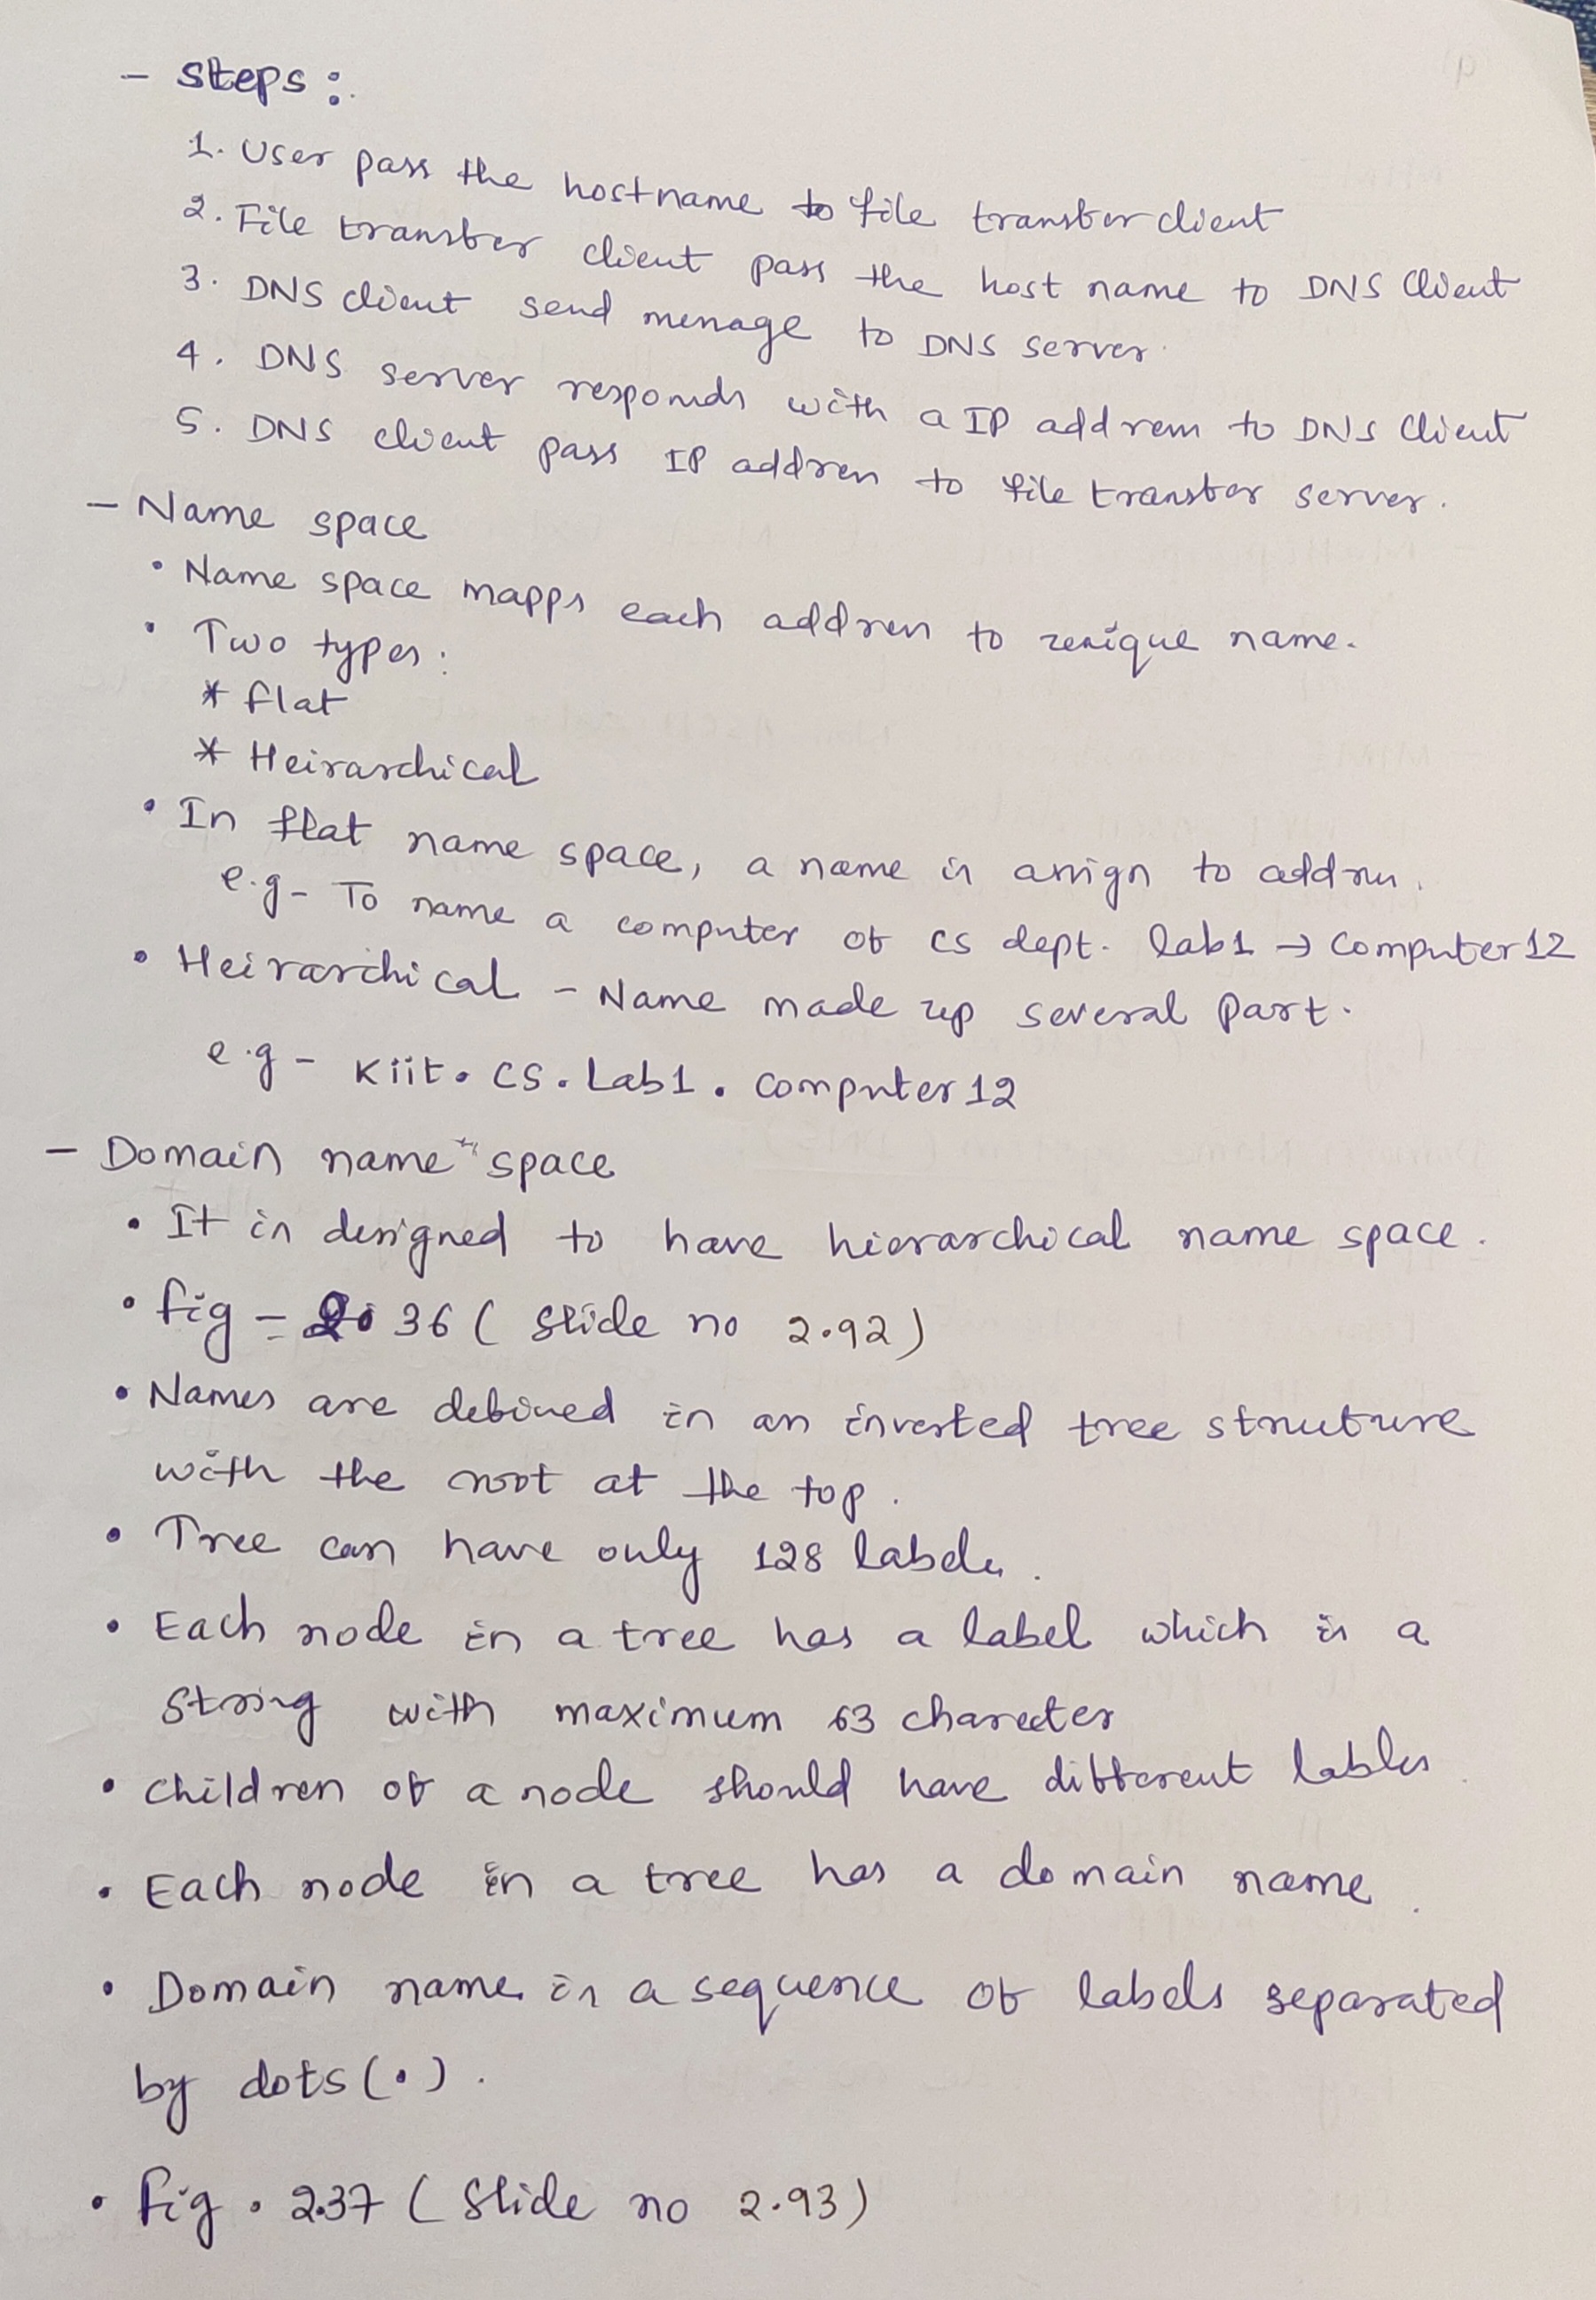 - Steps:
1. User pass the hostname to file transfer client
2. File transfer client pass the host name to DNS Client
3. DNS client send message to DNS server.
4. DNS server responds with a IP address to DNS Client
5. DNS client pass IP address to file transfer server.
- Name space
• Name space mapps each address to unique name.
• Two types:
* flat
* Heirarchical
• In flat name space, a name is assign to address.
e.g - To name a computer of CS dept. lab1 → Computer12
• Heirarchical - Name made up several part.
e.g - Kiit. CS. Lab1. Computer12
- Domain name space
• It is designed to have hierarchical name space.
• fig - 2.36 ( Slide no 2.92)
• Names are defined in an inverted tree struture
with the root at the top.
• Tree can have only 128 labels.
• Each node in a tree has a label which is a
String with maximum 63 charecter
• Children of a node should have different lables.
• Each node in a tree has a domain name.
• Domain name is a sequence of labels separated
by dots(.).
• fig. 2.37 ( Slide no 2.93)